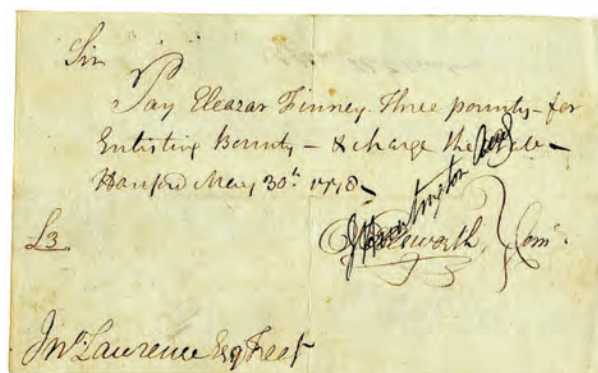 Sir
Pay Eleazar Finney Three pounds - for
Enlisting Bounty - & charge the State -
Hartford May 30th. 1778 -
£3
J Huntington
Ellsworth, } Comte.
Jno. Lawrence Esq Treasr